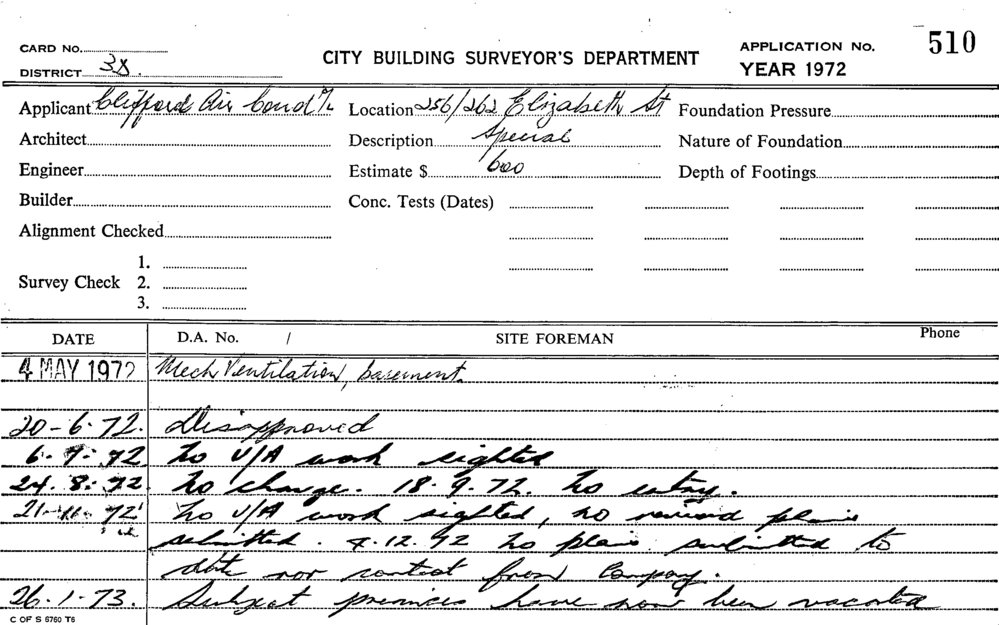 CARD No.
DISTRICT 38.
CITY BUILDING SURVEYOR'S DEPARTMENT
APPLICATION No. 510
YEAR 1972
Applicant Clifford Air Cond P/L
Location 256/262 Elizabeth St
Foundation Pressure
Architect
Description Special
Nature of Foundation
Engineer
Estimate $ 600
Depth of Footings
Builder
Conc. Tests (Dates)
Alignment Checked
Survey Check 1.
2.
3.
DATE D.A. No. / SITE FOREMAN Phone
4 MAY 1972 Mech Ventilation, basement.
20-6-72. Disapproved
6. 7. 72 No U/A work sighted
24. 8. 72. No change. 18. 9. 72. No entry.
21-11-72 No U/A work sighted, no revised plans
submitted. 4.12.72 No plans submitted to
date nor contact from Company.
26.1.73. Subject premises have now been vacated
C OF S 6760 T6